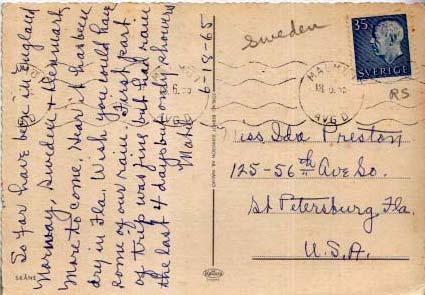 So far have been in England
Norway, Sweden + Denmark
More to come. Hear it has been
dry in Fla. Wish you would have
some of our rain. First part
of trip was fine but had rain
the last 4 days but only showers
6-18-65
SKÅNE
Sweden
35
SVERIGE
MALMÖ
AVG D
AVG D
RS
Miss Ida Preston
125-56th Ave So.
St Petersburg, Fla.
U.S.A.